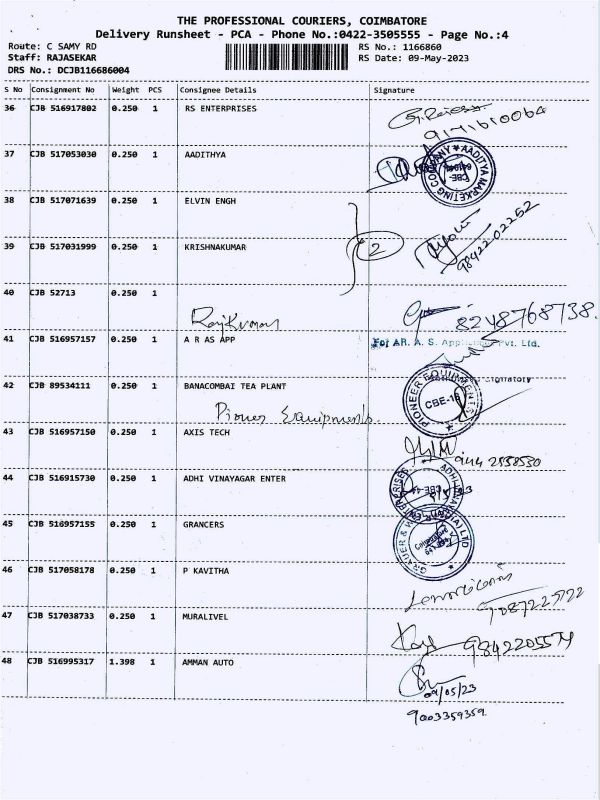 THE PROFESSIONAL COURIERS, COIMBATORE
Delivery Runsheet - PCA - Phone No.:0422-3505555 - Page No.:4
Route: C SAMY RD RS No.: 1166860
Staff: RAJASEKAR RS Date: 09-May-2023
DRS No.: DCJB116686004
S No Consignment No Weight PCS Consignee Details Signature
36 CJB 516917802 0.250 1 RS ENTERPRISES
9171610064
37 CJB 517053030 0.250 1 AADITHYA
AADITYA MARKETING COMPANY
38 CJB 517071639 0.250 1 ELVIN ENGH
39 CJB 517031999 0.250 1 KRISHNAKUMAR 2
98422 02252
40 CJB 52713 0.250 1
Rajkumar 8248768738.
41 CJB 516957157 0.250 1 A R AS APP
For AR. A. S. Appliances Pvt. Ltd.
42 CJB 89534111 0.250 1 BANACOMBAI TEA PLANT
Signatory
PIONEER EQUIPMENTS
CBE-18
Pioneer Equipments.
43 CJB 516957150 0.250 1 AXIS TECH
44 CJB 516915730 0.250 1 ADHI VINAYAGAR ENTER
45 CJB 516957155 0.250 1 GRANCERS
46 CJB 517058178 0.250 1 P KAVITHA
47 CJB 517038733 0.250 1 MURALIVEL
9842205579
48 CJB 516995317 1.398 1 AMMAN AUTO
09/05/23
9003359359